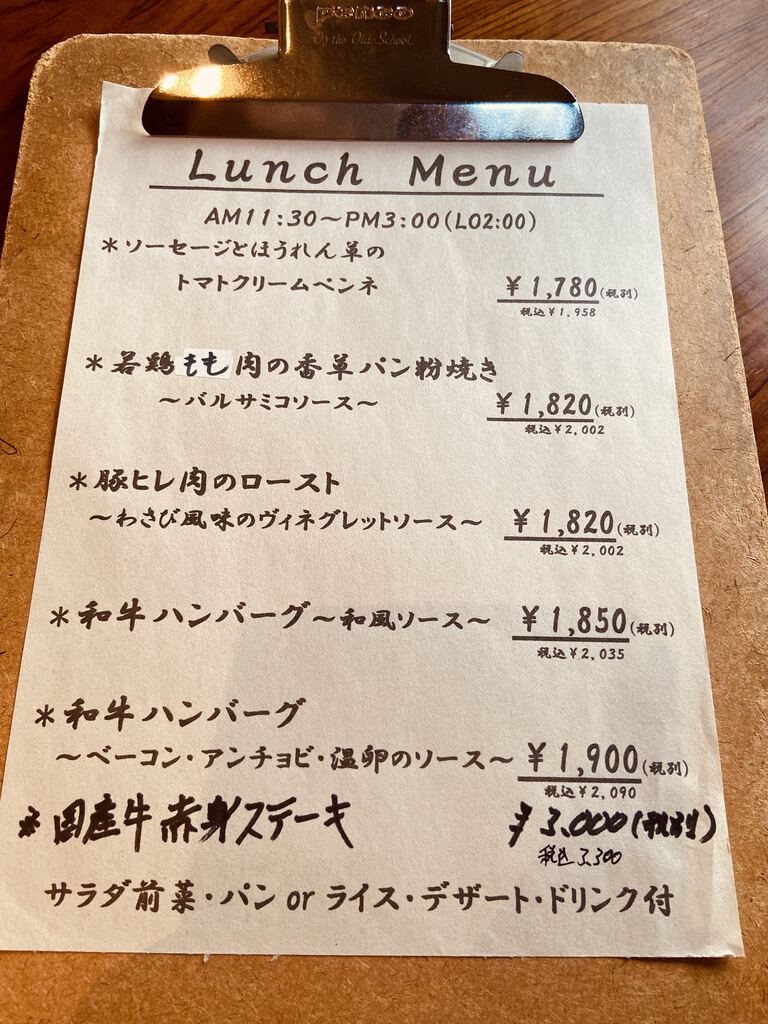 penco
Of the Old School.
Lunch Menu
AM11:30～PM3:00(LO2:00)
＊ソーセージとほうれん草の
トマトクリームペンネ ￥1,780(税別)
税込￥1,958
＊若鶏もも肉の香草パン粉焼き
～バルサミコソース～ ￥1,820(税別)
税込￥2,002
＊豚ヒレ肉のロースト
～わさび風味のヴィネグレットソース～ ￥1,820(税別)
税込￥2,002
＊和牛ハンバーグ～和風ソース～ ￥1,850(税別)
税込￥2,035
＊和牛ハンバーグ
～ベーコン・アンチョビ・温卵のソース～ ￥1,900(税別)
税込￥2,090
＊国産牛赤身ステーキ ￥3,000(税別)
税込3,300
サラダ前菜・パン or ライス・デザート・ドリンク付